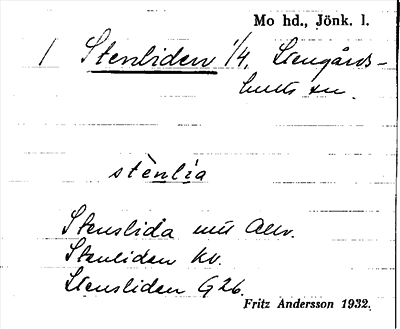 Mo hd., Jönk. l.
/ Stenliden 1/4, Stengårds-
hults sn.
stènlia
Stenslida nu Allv.
Stenliden Kv.
Stensliden G26.
Fritz Andersson 1932.